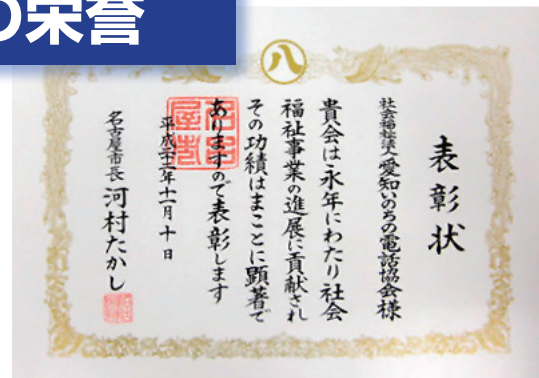 の栄誉
八
表彰状
社会福祉法人愛知いのちの電話協会様
貴会は永年にわたり社会
福祉事業の進展に貢献され
その功績はまことに顕著で
ありますので表彰します
平成二十二年十一月十日
名古屋市長 河村たかし
名古屋市